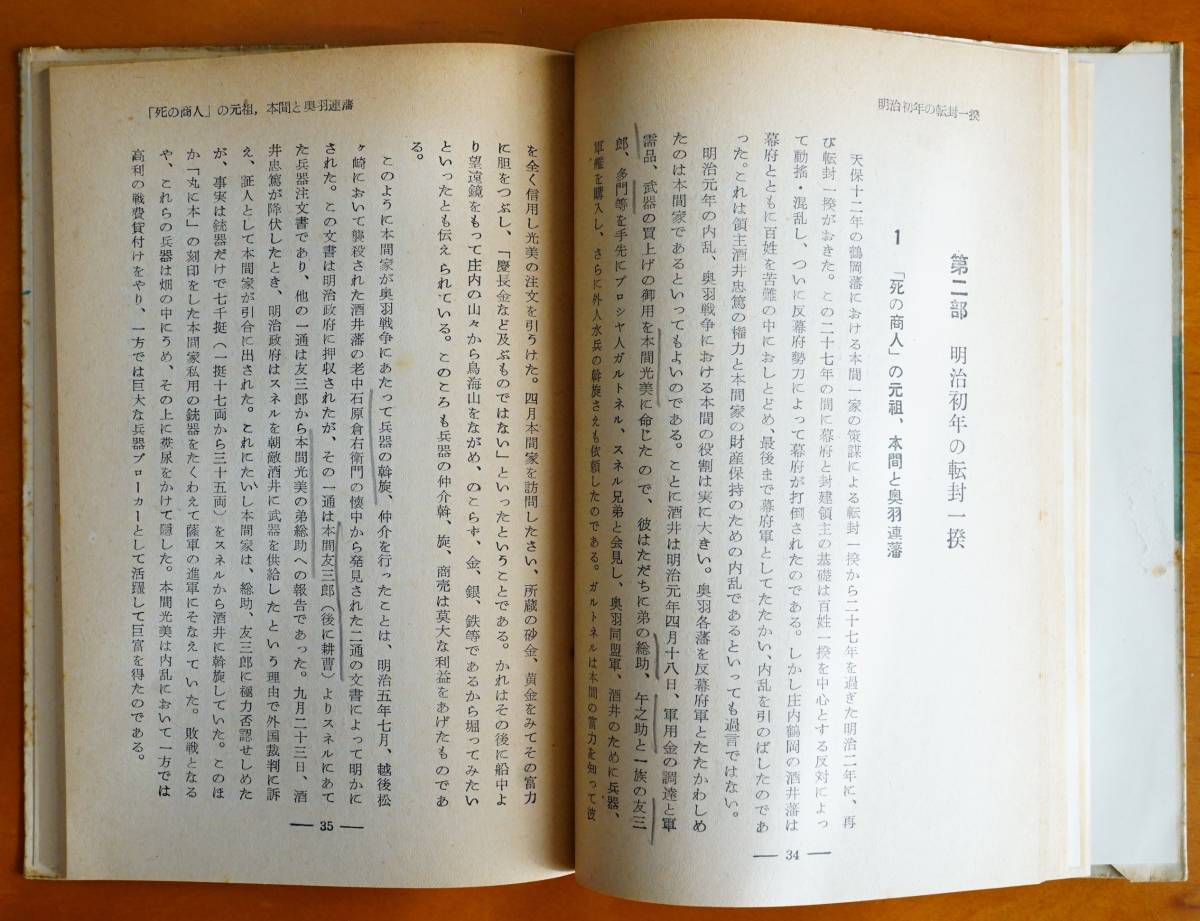 明治初年の転封一揆
第二部　明治初年の転封一揆
1　「死の商人」の元祖、本間と奥羽連藩
天保十二年の鶴岡藩における本間一家の策謀による転封一揆から二十七年を過ぎた明治二年に、再
び転封一揆がおきた。この二十七年の間に幕府と封建領主の基礎は百姓一揆を中心とする反対によっ
て動搖・混乱し、ついに反幕府勢力によって幕府が打倒されたのである。しかし庄内鶴岡の酒井藩は
幕府とともに百姓を苦難の中におしとどめ、最後まで幕府軍としてたたかい、内乱を引のばしたのであ
った。これは領主酒井忠篤の権力と本間家の財産保持のための内乱であるといっても過言ではない。
明治元年の内乱、奥羽戦争における本間の役割は実に大きい。奥羽各藩を反幕府軍とたたかわしめ
たのは本間家であるといってもよいのである。ことに酒井は明治元年四月十八日、軍用金の調達と軍
需品、武器の買上げの御用を本間光美に命じたので、彼はただちに弟の総助、午之助と一族の友三
郎、多門等を手先にプロシヤ人ガルトネル、スネル兄弟と会見し、奥羽同盟軍、酒井のために兵器、
軍艦を購入し、さらに外人水兵の斡旋さえも依頼したのである。ガルトネルは本間の富力を知って彼
— 34 —
「死の商人」の元祖，本間と奥羽連藩
を全く信用し光美の注文を引うけた。四月本間家を訪問したさい、所蔵の砂金、黄金をみてその富力
に胆をつぶし、「慶長金など及ぶものではない」といったということである。かれはその後に船中よ
り望遠鏡をもって庄内の山々から鳥海山をながめ、のこらず、金、銀、鉄等であるから堀ってみたい
といったとも伝えられている。このころも兵器の仲介斡、旋、商売は莫大な利益をあげたものであ
る。
このように本間家が奥羽戦争にあたって兵器の斡旋、仲介を行ったことは、明治五年七月、越後松
ヶ崎において襲殺された酒井藩の老中石原倉右衛門の懐中から発見された二通の文書によって明かに
された。この文書は明治政府に押収されたが、その一通は本間友三郎（後に耕曹）よりスネルにあて
た兵器注文書であり、他の一通は友三郎から本間光美の弟総助への報告であった。九月二十三日、酒
井忠篤が降伏したとき、明治政府はスネルを朝敵酒井に武器を供給したという理由で外国裁判に訴
え、証人として本間家が引合に出された。これにたいし本間家は、総助、友三郎に極力否認せしめた
が、事実は銃器だけで七千挺（一挺十七両から三十五両）をスネルから酒井に斡旋していた。このほ
か「丸に本」の刻印をした本間家私用の銃器をたくわえて薩軍の進軍にそなえていた。敗戦となる
や、これらの兵器は畑の中にうめ、その上に糞尿をかけて隠した。本間光美は内乱において一方では
高利の戦費貸付けをやり、一方では巨大な兵器ブローカーとして活躍して巨富を得たのである。
— 35 —